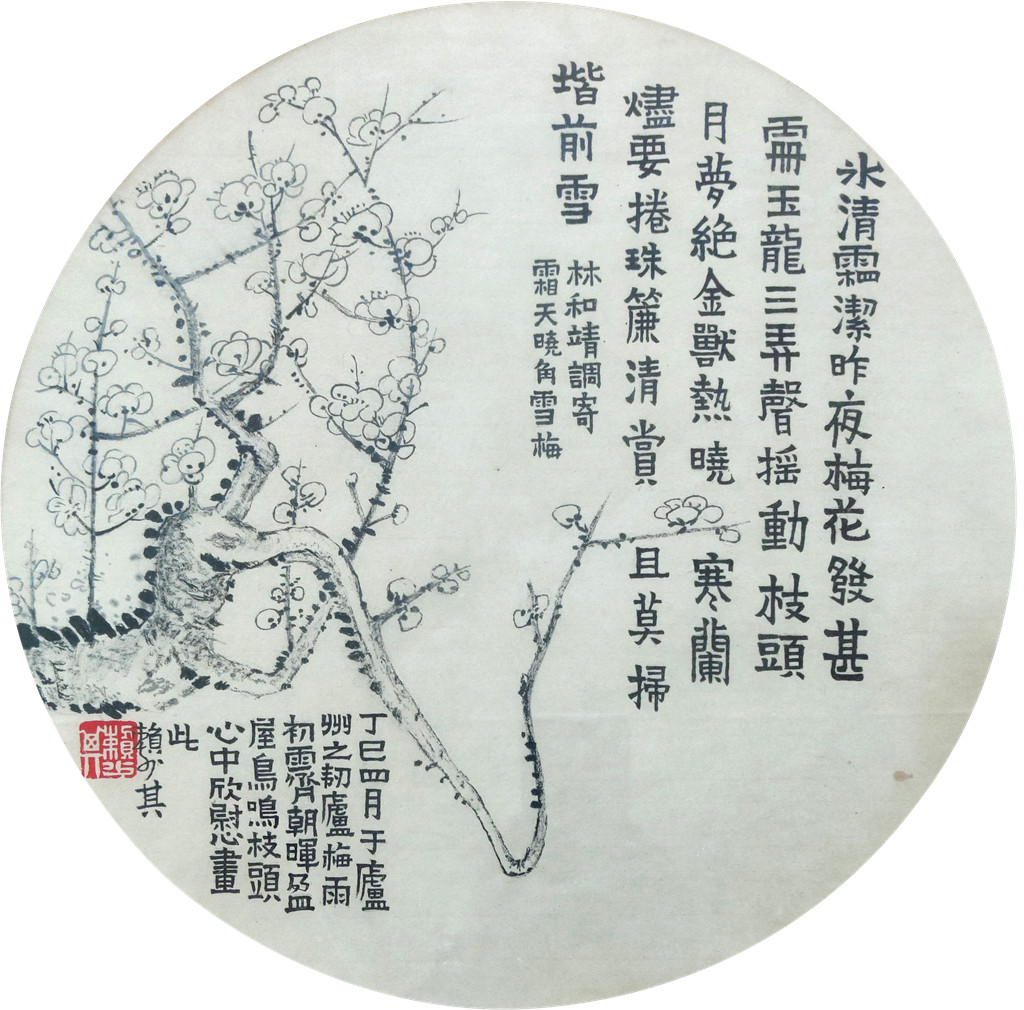 氷清霜潔昨夜梅花發甚
玉龍三弄聲摇動枝頭
月夢絶金獸熱曉寒蘭
燼要捲珠簾清賞且莫掃
堦前雪
林和靖調寄
霜天曉角雪梅
丁巳四月于廬
州之韌廬梅雨
初霽朝暉盈
屋鳥鳴枝頭
心中欣慰畫
此
賴少其
賴少其